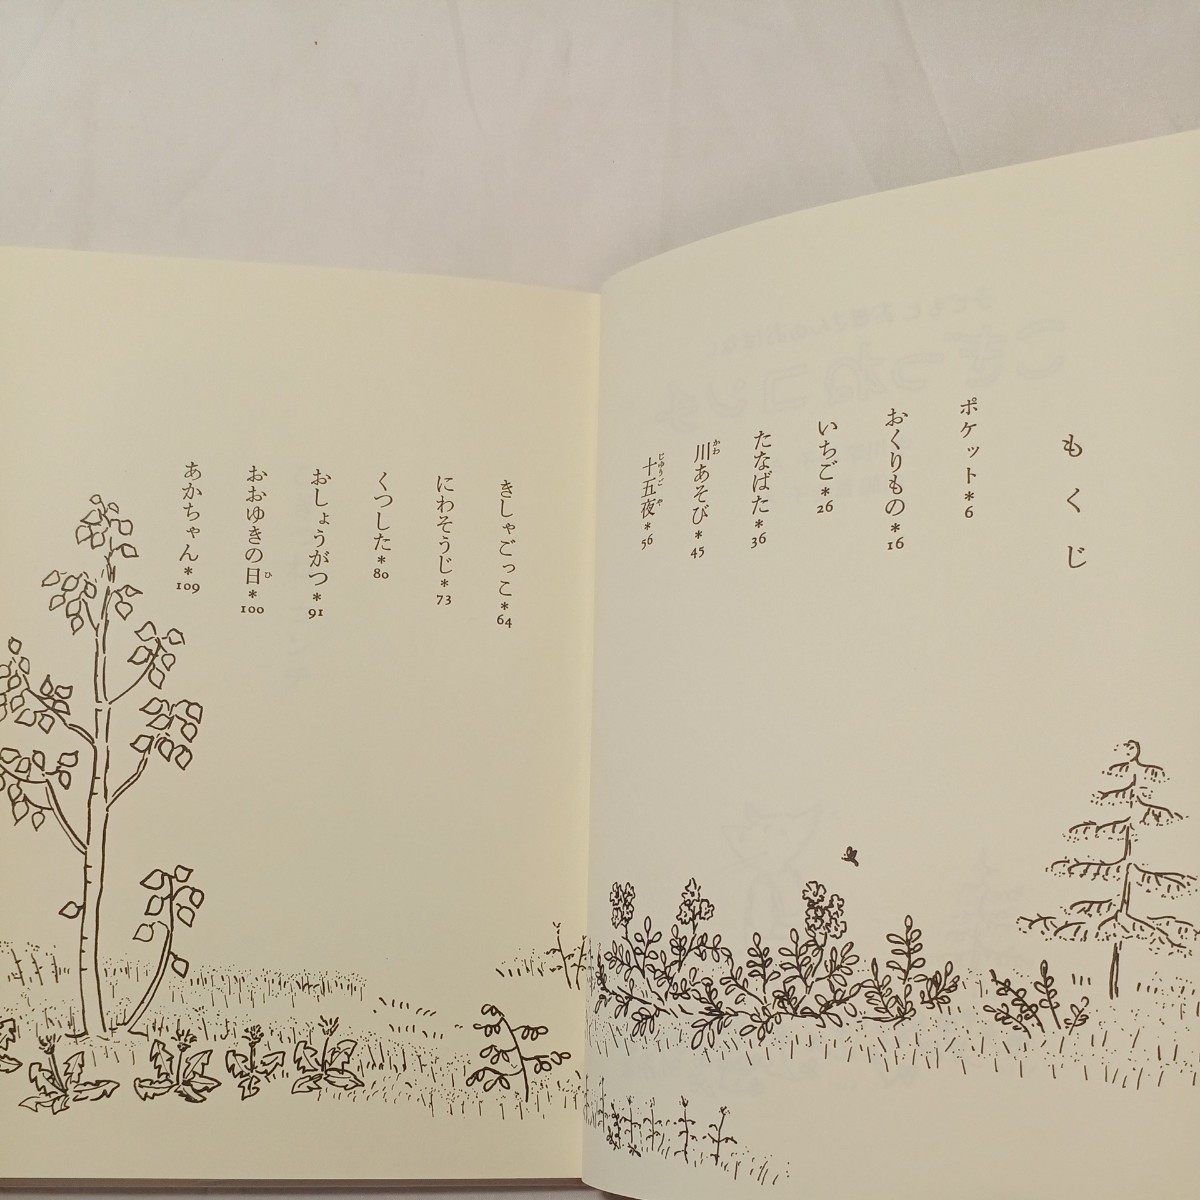 もくじ
ポケット*6
おくりもの*16
いちご*26
たなばた*36
川あそび*45
かわ
十五夜*56
じゅうごや
きしゃごっこ*64
にわそうじ*73
くつした*80
おしょうがつ*91
おおゆきの日*100
ひ
あかちゃん*109